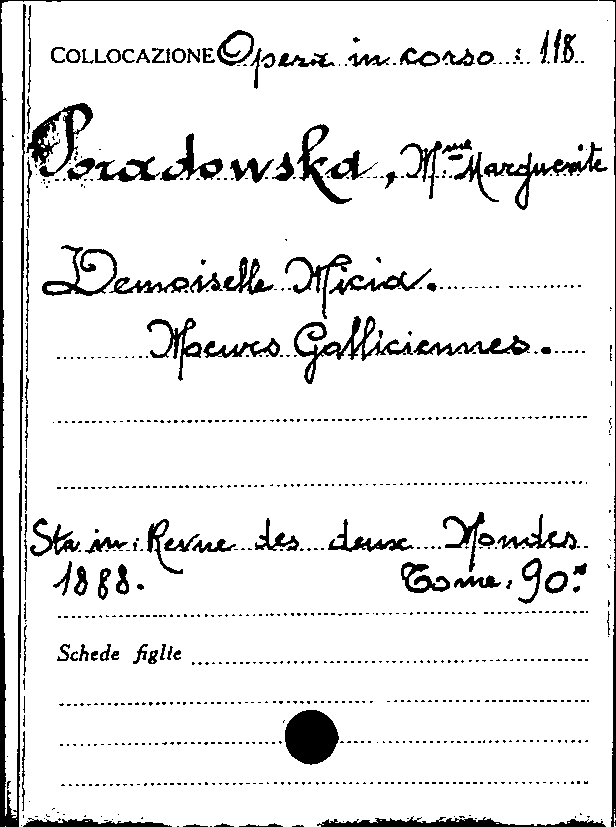 COLLOCAZIONE Opera in corso : 118
Poradowska, Mme Marguerite
Demoiselle Micia.
Moeurs Galliciennes.
Sta in: Revue des deux Mondes
1888. Tome: 90.º
Schede figlie